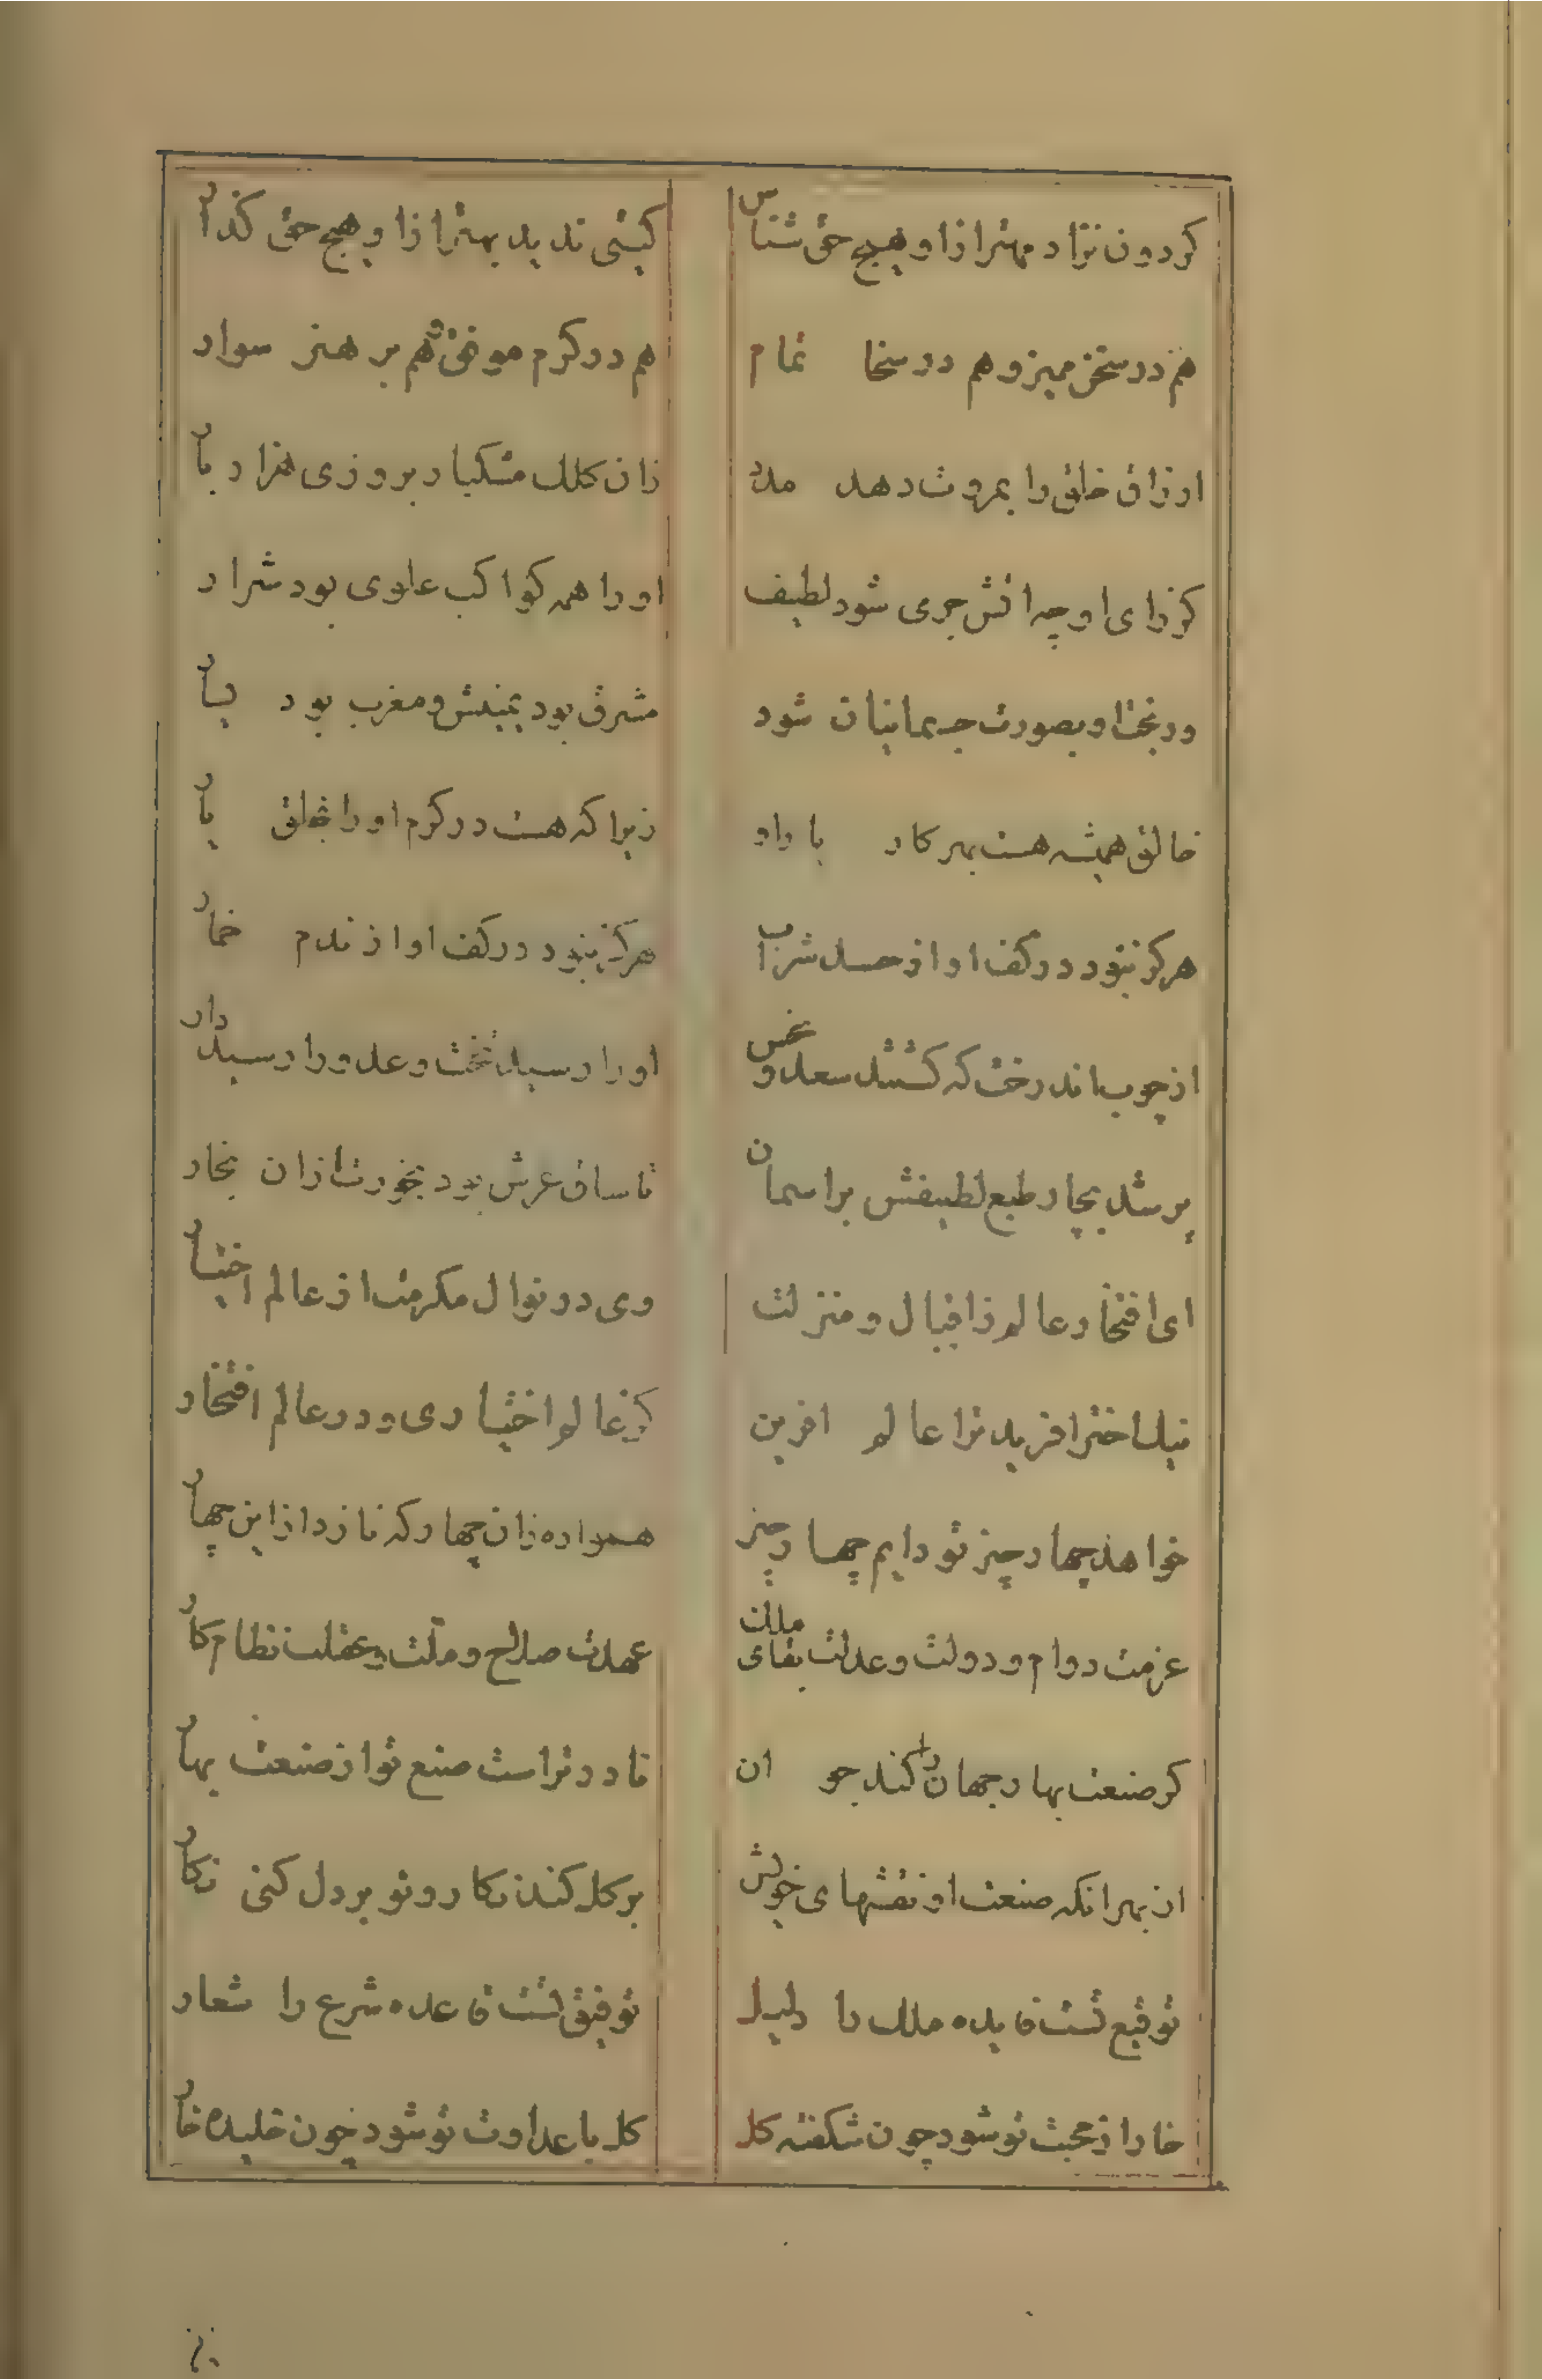 کردون نزاد مهتر ازاو هیچ حق شناس کیتی ندید بهتر ازاو هیچ حق کذار
هم در سخن ممیز و هم در سخا تمام هم در کرم موفق و هم بر هنر سوار
ارزاق خلق را بمروت دهد مدد زان کلک مشکبار بروزی هزار بار
کر رای او چه اتش جرمی شود لطیف او را همه کواکب علوی بود شرار
ور بخت او بصورت جسمانیان شود مشرق بود یمینش و مغرب بود یسار
خالق همیشه هست بهر کار یار او زیرا که هست در کرم او را بخلق یار
هرکز نبود در کف او از حسد شراب هرکز نبود در کف او از ندم خمار
از چوب اندرخت که کشتند سعد و نحس او را رسید تخت و عدو را رسید دار
بر شد بخار طبع لطیفش بر اسمان تا ساق عرش بود بخورت ازان بخار
ای افتخار عالم ز اقبال و منزلت وی در نوال مکرمت از عالم اختیار
نیک اختر افرید ترا عالم افرین کز عالم اختیاری و در عالم افتخار
خواهد چهار چیز تو دایم چهار چیز همواره زان چهار که نازد ازاین چهار
عزمت دوام و دولت و عدلت بقای ملک عهدت صلاح و ملت و عقلت نظام کار
کر صنعت بهار جهان را کند جوان نادرتر است صنع تو از صنعت بهار
از بهر انکه صنعت او نقشهای خوش بر کل کند نکار و تو بر دل کنی نکار
توقیع تست فایده ملک را دلیل توفیق تست قاعده شرع را شعار
خار از محبت تو شود چون شکفته کل کل با عداوت تو شود چون خلیده خار